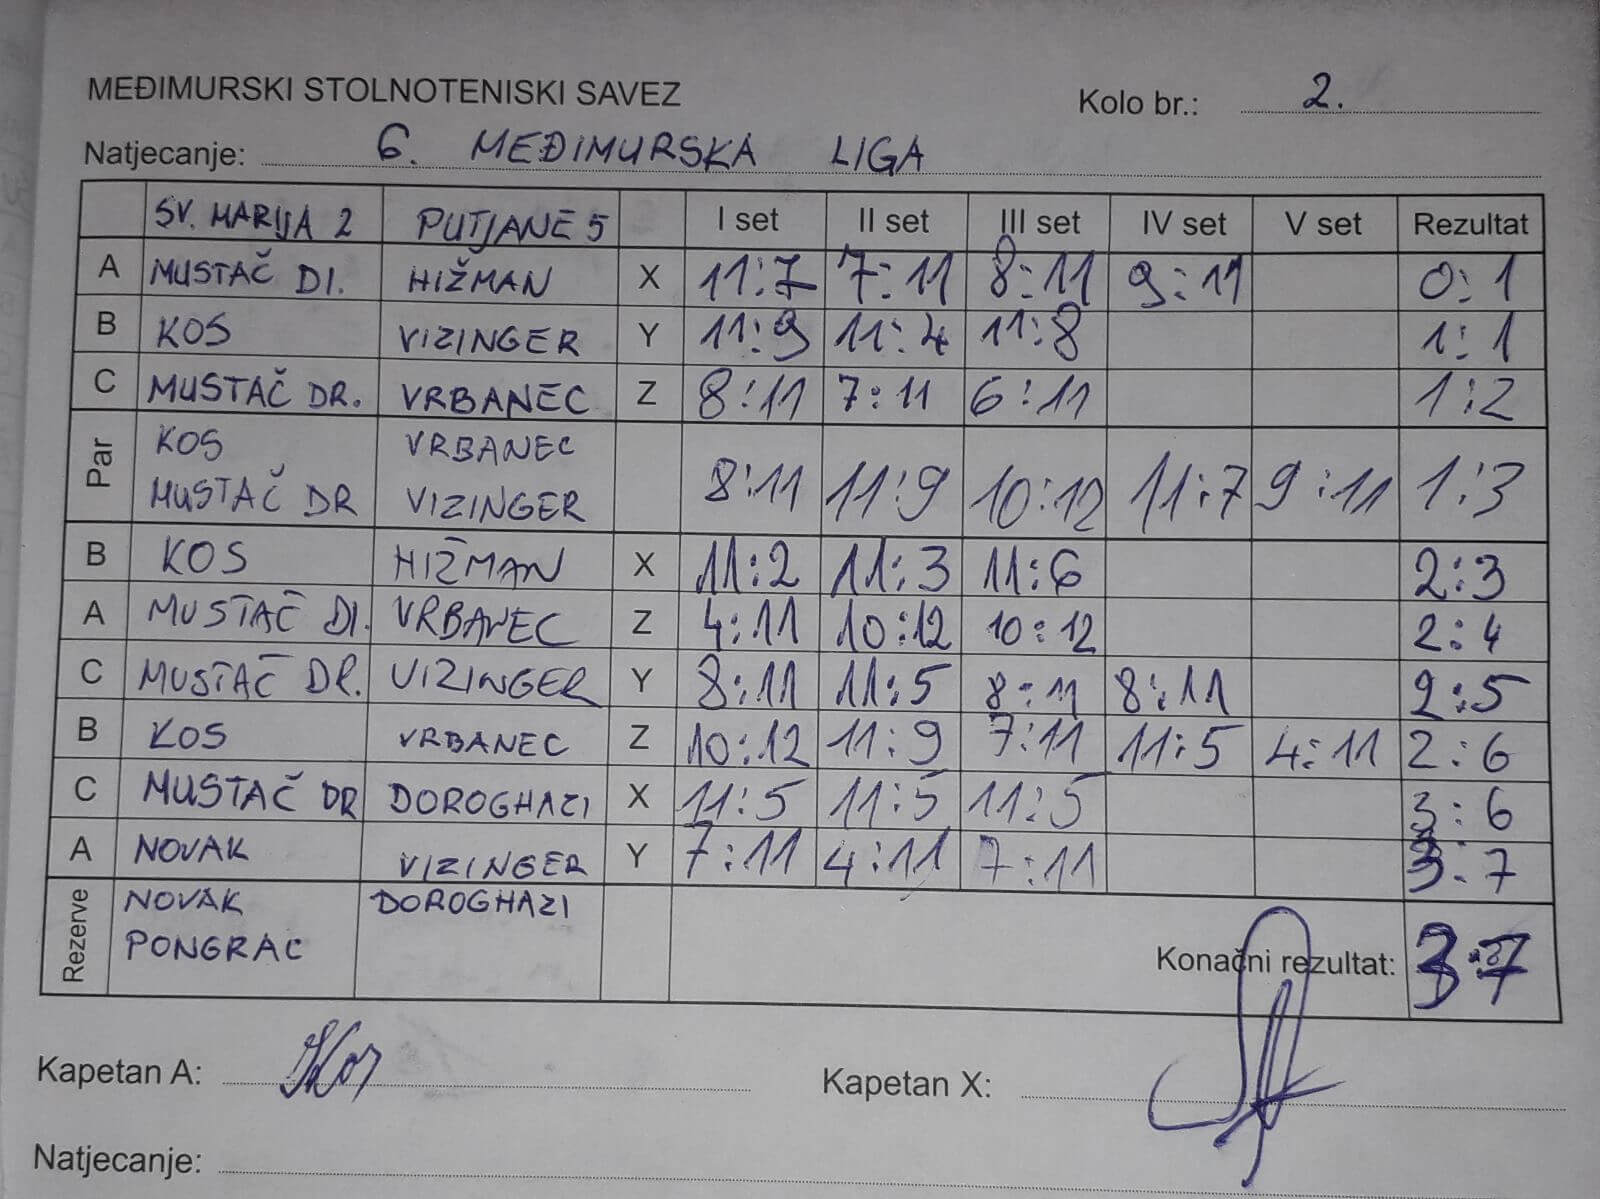 MEĐIMURSKI STOLNOTENISKI SAVEZ
Kolo br.: 2.
Natjecanje: 6. MEĐIMURSKA LIGA
SV. MARIJA 2 PUTJANE 5 I set II set III set IV set V set Rezultat
A MUSTAČ DI. HIŽMAN X 11:7 7:11 8:11 9:11 0:1
B KOS VIZINGER Y 11:9 11:4 11:8 1:1
C MUSTAČ DR. VRBANEC Z 8:11 7:11 6:11 1:2
Par KOS VRBANEC
MUSTAČ DR VIZINGER 8:11 11:9 10:12 11:7 9:11 1:3
B KOS HIŽMAN X 11:2 11:3 11:6 2:3
A MUSTAČ DI. VRBANEC Z 4:11 10:12 10:12 2:4
C MUSTAČ DR. VIZINGER Y 8:11 11:5 8:11 8:11 2:5
B KOS VRBANEC Z 10:12 11:9 7:11 11:5 4:11 2:6
C MUSTAČ DR DOROGHAZI X 11:5 11:5 11:5 3:6
A NOVAK VIZINGER Y 7:11 4:11 7:11 3:7
Rezerve NOVAK DOROGHAZI
PONGRAC
Konačni rezultat: 3:7
Kapetan A: Kos
Kapetan X:
Natjecanje: